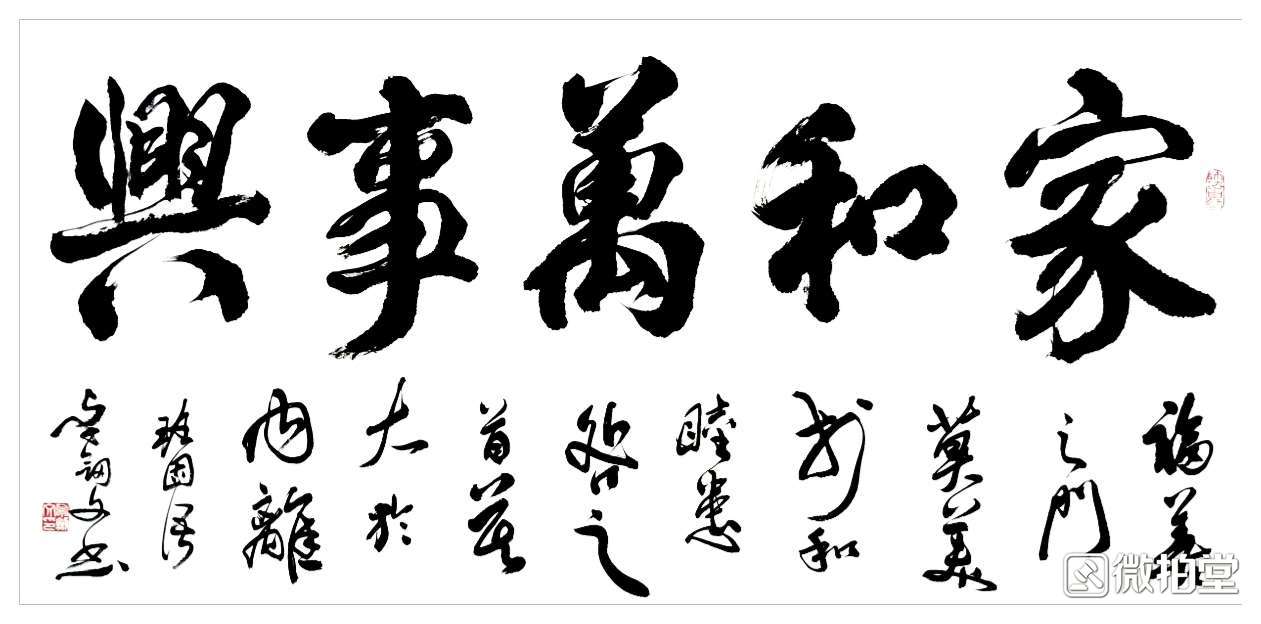 家和萬事興
福善
之門
莫美
於和
睦患
咎之
首莫
大於
內離
班固語
微拍堂